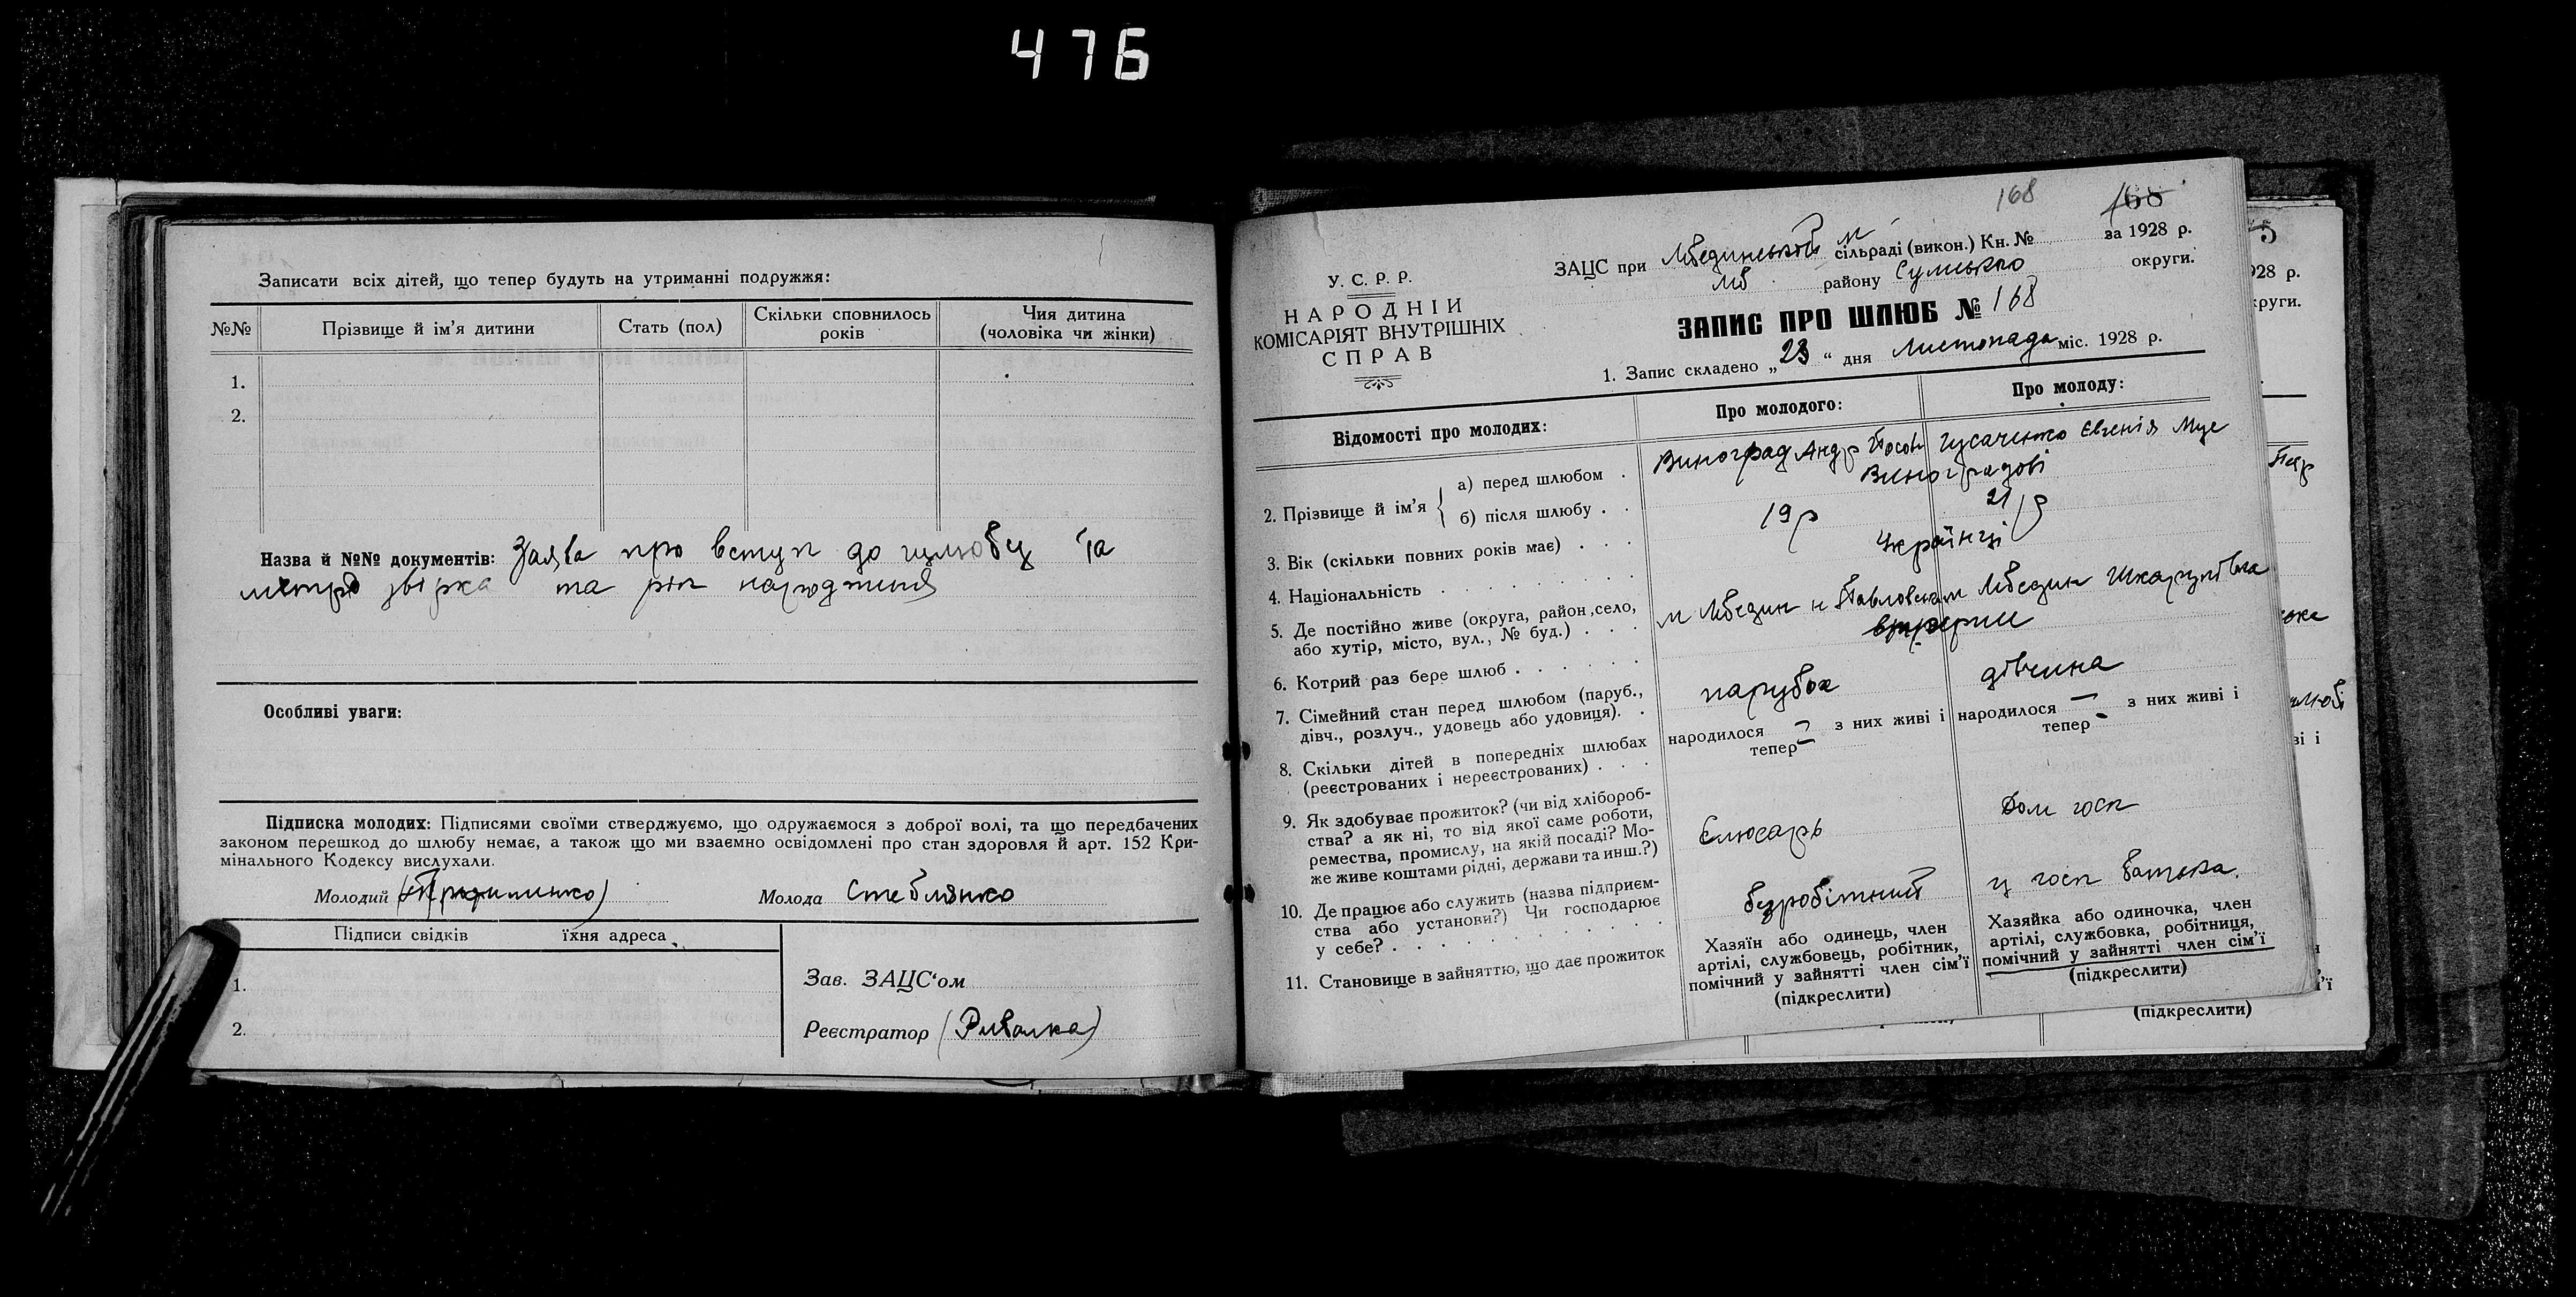 476
Записати всіх дітей, що тепер будуть на утриманні подружжя:
№№ Прізвище й ім'я дитини Стать (пол) Скільки сповнилось років Чия дитина (чоловіка чи жінки)
1.
2.
Назва й №№ документів: Заява про вступ до шлюбу та
метр звірка та рік народження
Особливі уваги:
Підписка молодих: Підписями своїми стверджуємо, що одружаємося з доброї волі, та що передбачених
законом перешкод до шлюбу немає, а також що ми взаємно освідомлені про стан здоровля й арт. 152 Кри-
мінального Кодексу вислухали.
Молодий Молода Стеблянко
Підписи свідків їхня адреса
1.
2.
Зав. ЗАЦС'ом
Реєстратор (Ривалка)
168 168
У. С. Р. Р.
НАРОДНІЙ
КОМІСАРІЯТ ВНУТРІШНІХ
СПРАВ
ЗАЦС при Лебединській м сільраді (викон.) Кн. № за 1928 р.
Леб району Сумсько округи.
ЗАПИС ПРО ШЛЮБ № 168
1. Запис складено „23“ дня Листопада міс. 1928 р.
Відомості про молодих: Про молодого: Про молоду:
2. Прізвище й ім'я { а) перед шлюбом . Виноград Андр Гусаченко Євгенія Мус
б) після шлюбу . . Виноградові
3. Вік (скільки повних років має) . . . 19 р 21 р
4. Національність . . . . . . . . Українці
5. Де постійно живе (округа, район, село,
або хутір, місто, вул., № буд.) . . . м Лебедин н Павловська м Лебедин Шкарупівка
6. Котрий раз бере шлюб . . . . . . вперше
7. Сімейний стан перед шлюбом (паруб.,
дівч., розлуч., удовець або удовиця). . парубок дівчина
8. Скільки дітей в попередніх шлюбах
(реєстрованих і нереєстрованих) . . .
народилося — з них живі і
тепер —
народилося — з них живі і
тепер -
9. Як здобуває прожиток? (чи від хлібороб-
ства? а як ні, то від якої саме роботи,
ремества, промислу, на якій посаді? Мо-
же живе коштами рідні, держави та инш.?)
Слюсарь Дом госп
10. Де працює або служить (назва підприєм-
ства або установи?) Чи господарює
у себе? . . . . . . . . . . .
безробітний у госп батька.
11. Становище в зайняттю, що дає прожиток
Хазяїн або одинець, член
артілі, службовець, робітник,
помічний у зайнятті член сім'ї
(підкреслити)
Хазяйка або одиночка, член
артілі, службовка, робітниця,
помічний у зайнятті член сім'ї
(підкреслити)
5
928 р.
округи.
(підкреслити)